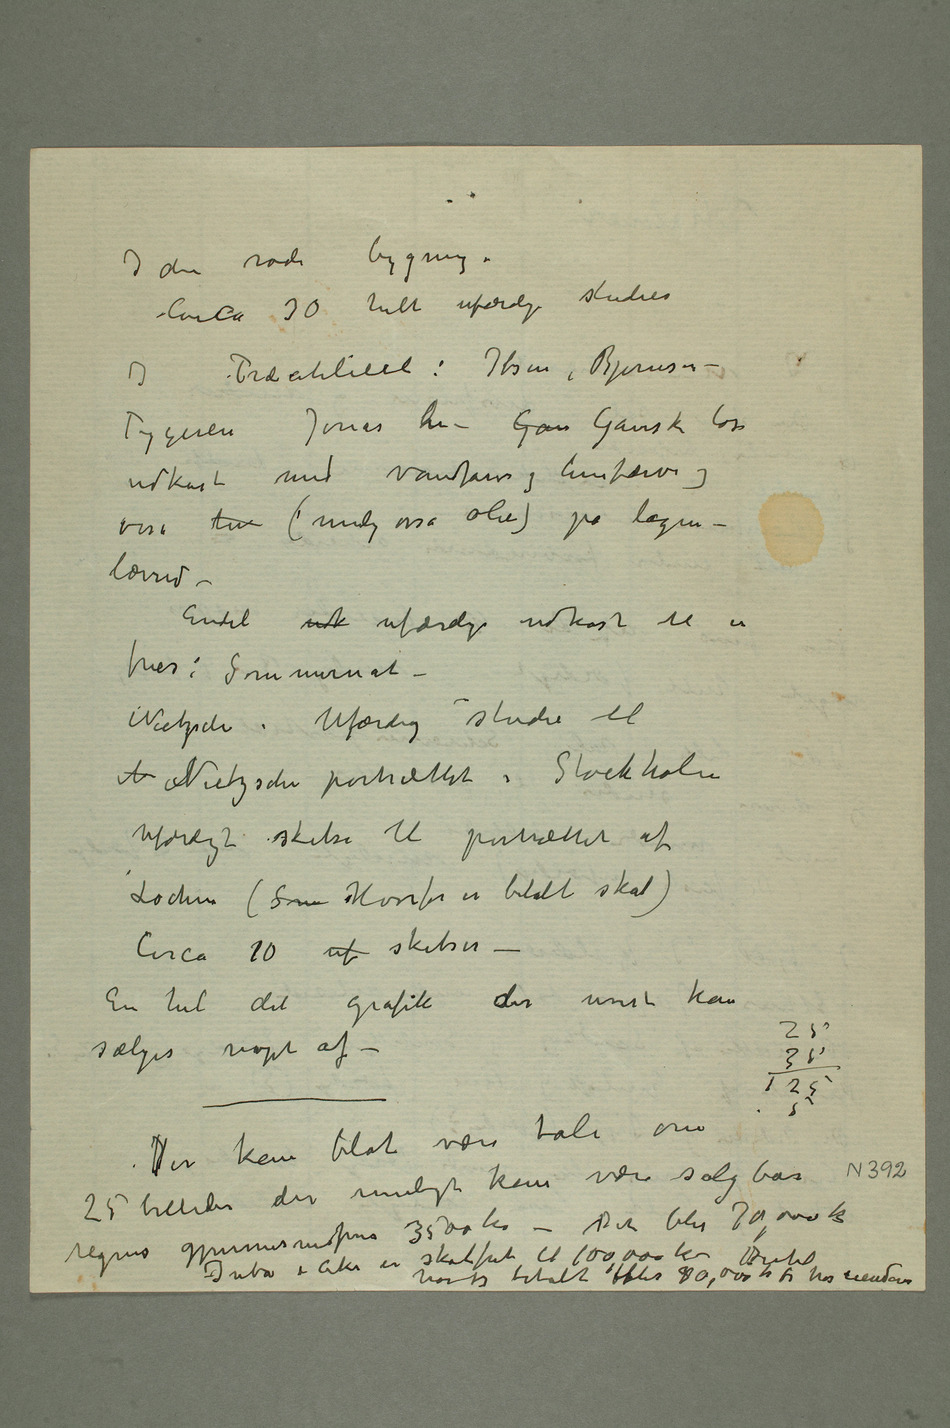 I den røde bygning.
Circa 30 helt uferdige studier
I Træatelieet: Ibsen, Bjørnson –
Tyggeren Jonas Lie – Gan Ganske løse
udkast med vandfarve og limfarve og
osså (mulig osså olie) på lagen –
lærred –
Endel udk ufærdige udkast til en
fries: Sommernat –
Nietzsche. Ufærdig studie til
Nietzsche portrættet i Stockholm
Ufærdigt skitse til portrættet af
Lochen (Som Hvorfor er betalt skat)
Circa 10 uf skitser –
En hel del grafik der neust kan
sælges noget af –
25
35
125
5
Der kan blot være tale om
25 billeder der muligt kan være salgbar
N 392
regnes gjennemsnitpris 3500 kr – Det blir 70,000 k
Inbo i Aker er skatfrit til 100,000 kr
betalt blir 90,000 kr